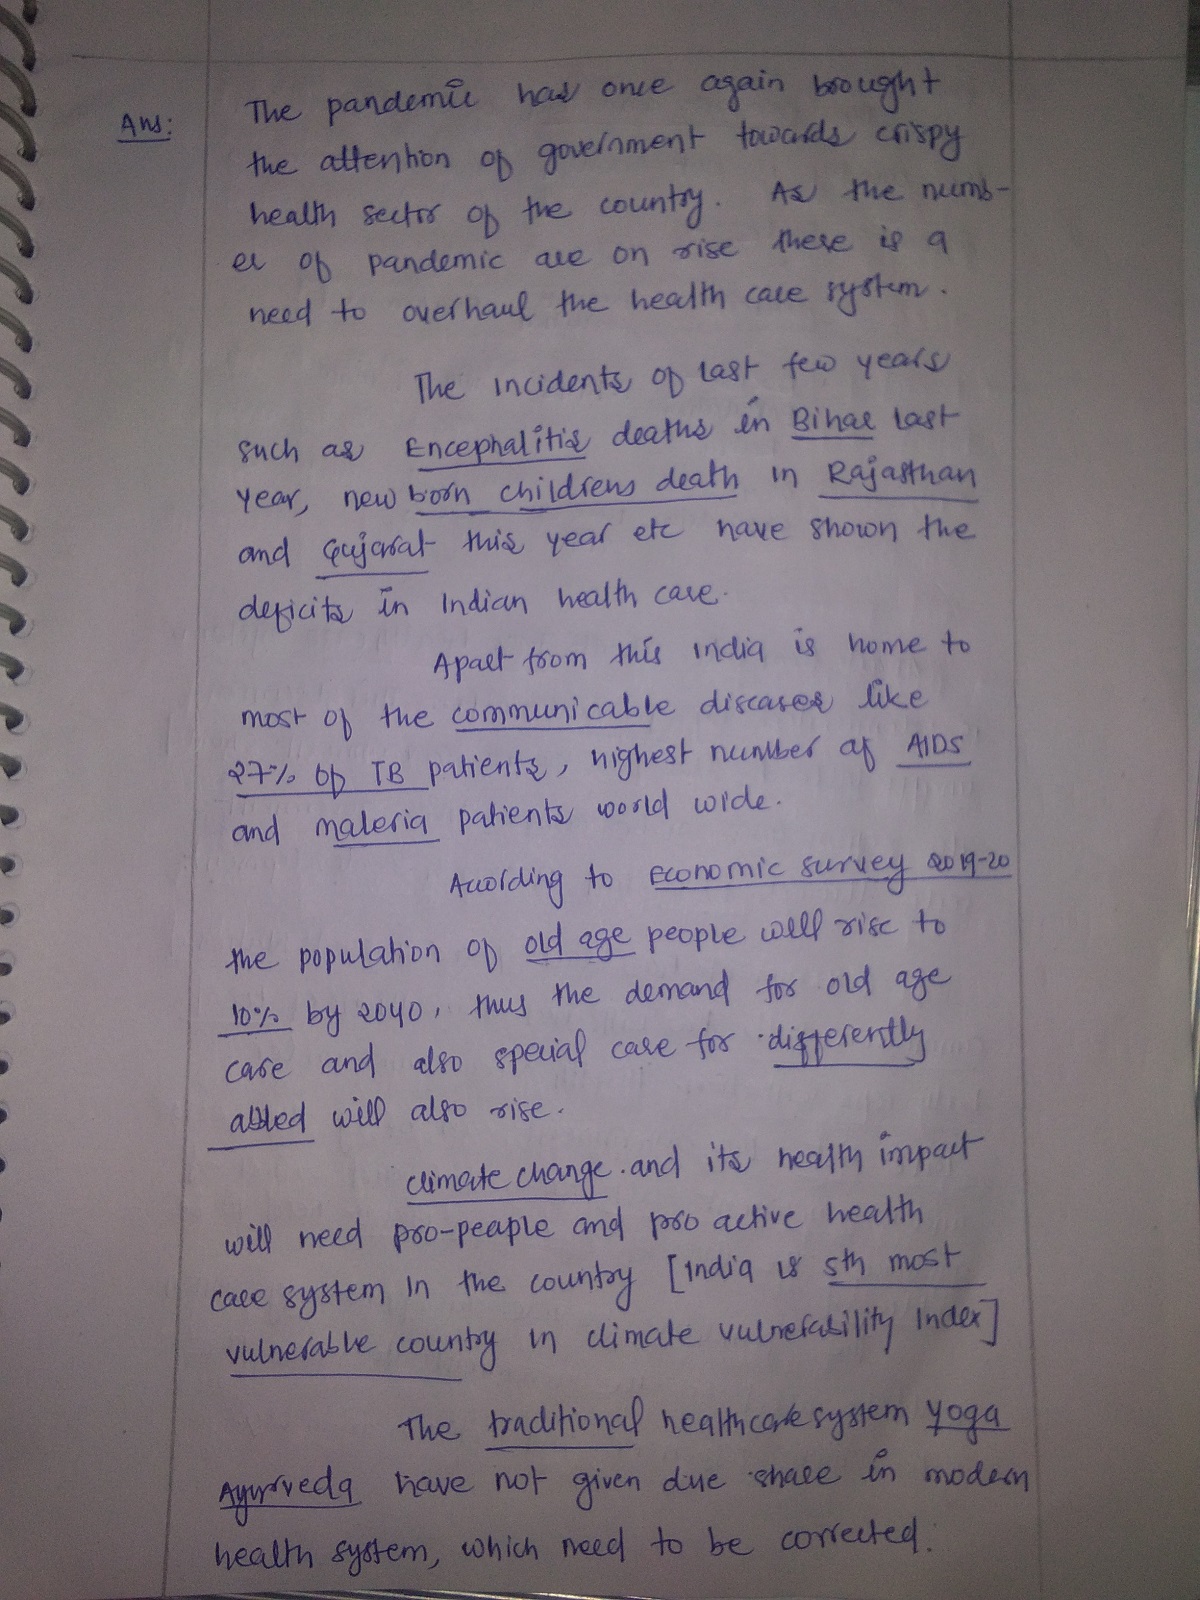 Ans:
The pandemic has once again brought
the attention of government towards crispy
health sector of the country. As the numb-
er of pandemic are on rise there is a
need to overhaul the health care system.
The incidents of last few years
such as Encephalitis deaths in Bihar last
year, new born childrens death in Rajasthan
and Gujarat this year etc have shown the
deficits in Indian health care.
Apart from this india is home to
most of the communicable diseases like
27% of TB patients, highest number of AIDS
and maleria patients world wide.
According to Economic survey 2019-20
the population of old age people will rise to
10% by 2040, thus the demand for old age
care and also special care for differently
abled will also rise.
climate change and its health impact
will need pro-people and pro active health
care system in the country [India is 5th most
vulnerable country in climate vulnerability Index]
The traditional healthcare system Yoga
Ayurveda have not given due share in modern
health system, which need to be corrected.